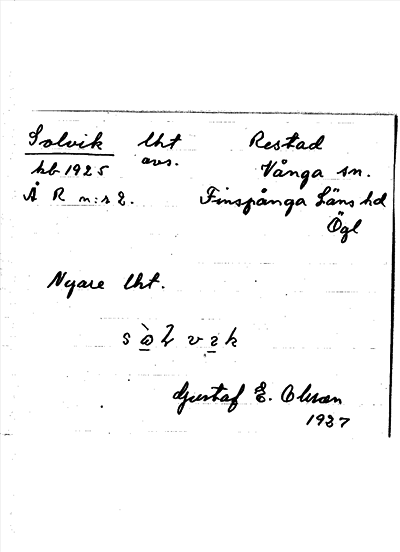 Solvik lht Restad
kb 1925 avs. Vånga sn.
Å R n:r 2. Finspånga Läns hd
Ögl
Nyare lht.
Gustaf E. Olsson
1927